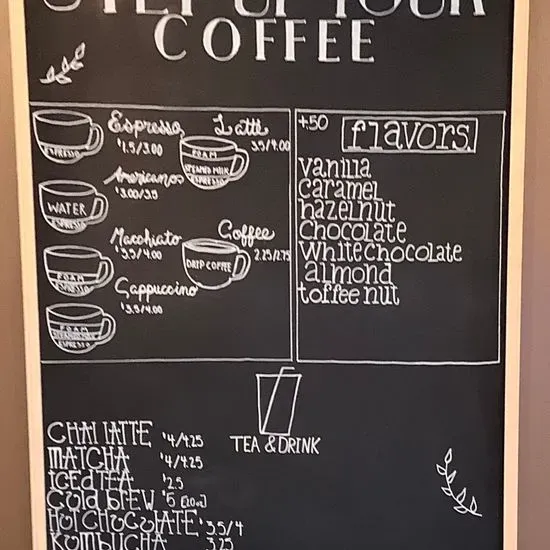 STEP UP YOUR
COFFEE
Espresso
$1.5/3.00
ESPRESSO
Latté
3.5/4.00
FOAM
STEAMED MILK
ESPRESSO
Americanos
$3.00/3.5
WATER
ESPRESSO
Macchiato
$3.5/4.00
FOAM
ESPRESSO
Coffee
2.25/2.75
DRIP COFFEE
Cappuccino
$3.5/4.00
FOAM
ESPRESSO
+.50 flavors
vanilla
caramel
hazelnut
chocolate
white chocolate
almond
toffee nut
TEA & DRINK
CHAI LATTE $4/4.25
MATCHA $4/4.25
ICED TEA $2.5
COLD BREW $5
HOT CHOCOLATE $3.5/4
KOMBUCHA 3.25